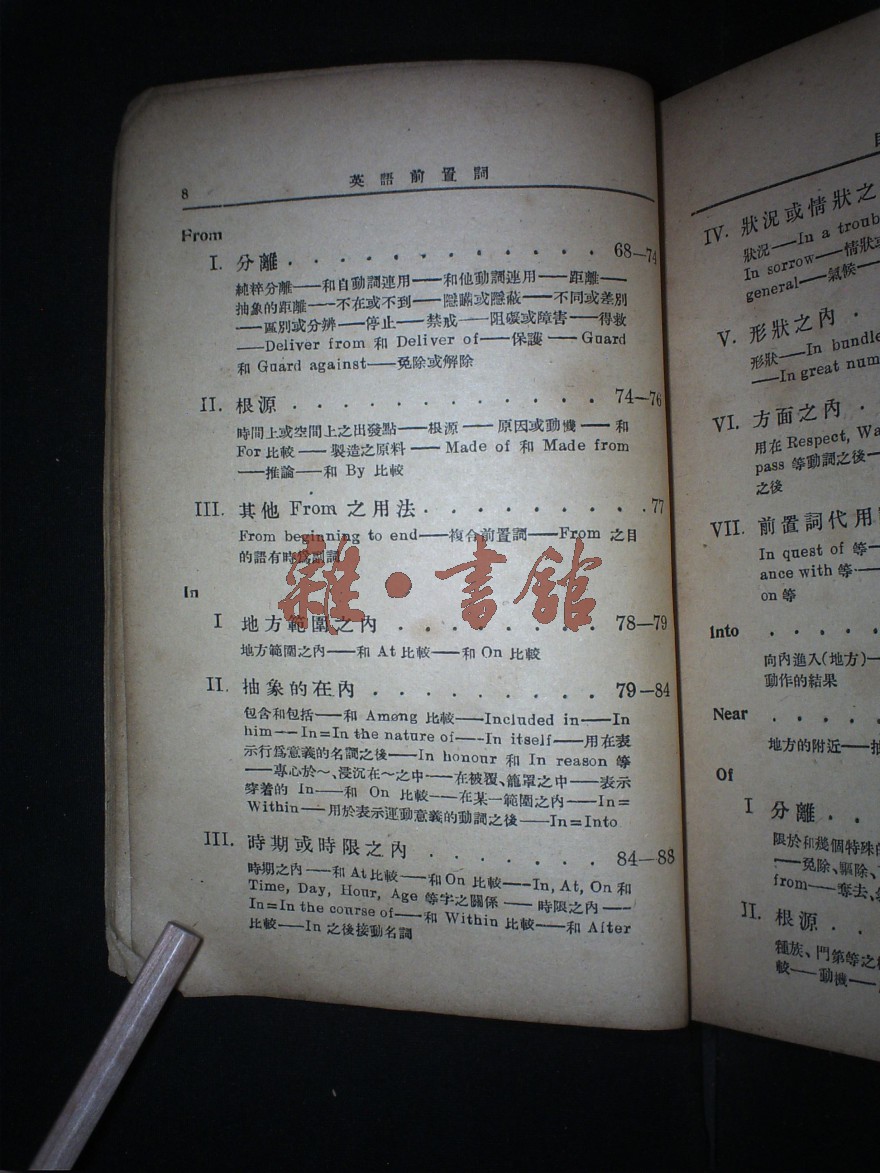 8
英語前置詞
From
I. 分離 . . . . . . . . . . . . . 68—74
純粹分離——和自動詞連用——和他動詞連用——距離——
抽象的距離——不在或不到——隱瞞或隱蔽——不同或差別
——區別或分辨——停止——禁戒——阻礙或障害——得救
——Deliver from 和 Deliver of——保護——Guard
和 Guard against——免除或解除
II. 根源 . . . . . . . . . . . . . 74—76
時間上或空間上之出發點——根源——原因或動機——和
For 比較——製造之原料——Made of 和 Made from
——推論——和 By 比較
III. 其他 From 之用法 . . . . . . . . . 77
From beginning to end——複合前置詞——From 之目
的語有時爲副詞
雜·書館
In
I 地方範圍之內 . . . . . . . . 78—79
地方範圍之內——和 At 比較——和 On 比較
II. 抽象的在內 . . . . . . . . . 79—84
包含和包括——和 Among 比較——Included in——In
him——In=In the nature of——In itself——用在表
示行爲意義的名詞之後——In honour 和 In reason 等
——專心於～、浸沉在～之中——在被覆、籠罩之中——表示
穿着的 In——和 On 比較——在某一範圍之內——In=
Within——用於表示運動意義的動詞之後——In=Into
III. 時期或時限之內 . . . . . . . 84—88
時期之內——和 At 比較——和 On 比較——In, At, On 和
Time, Day, Hour, Age 等字之關係——時限之內——
In=In the course of——和 Within 比較——和 After
比較——In 之後接動名詞
IV. 狀況或情狀之
狀況——In a troub
In sorrow——情狀或
general——氣候——
V. 形狀之內 .
形狀——In bundle
——In great num
VI. 方面之內 .
用在 Respect, Wa
pass 等動詞之後——
之後
VII. 前置詞代用
In quest of 等——
ance with 等——
on 等
Into . . . . .
向內進入(地方)——
動作的結果
Near . . . . .
地方的附近——抽
Of
I 分離 . .
限於和幾個特殊的
——免除、驅除、
from——奪去、
II. 根源 . .
種族、門第等之
較——動機——